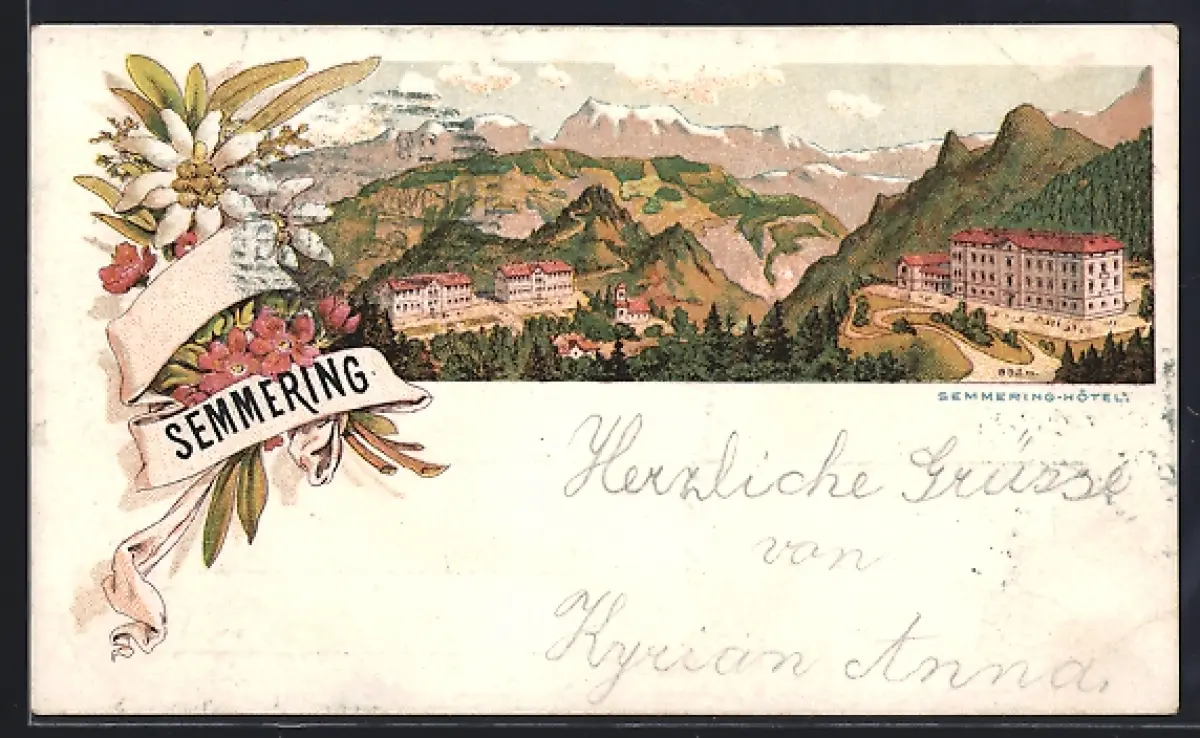 SEMMERING
892m.
SEMMERING-HÔTEL.
Herzliche Grüsse
von
Kyrian Anna.